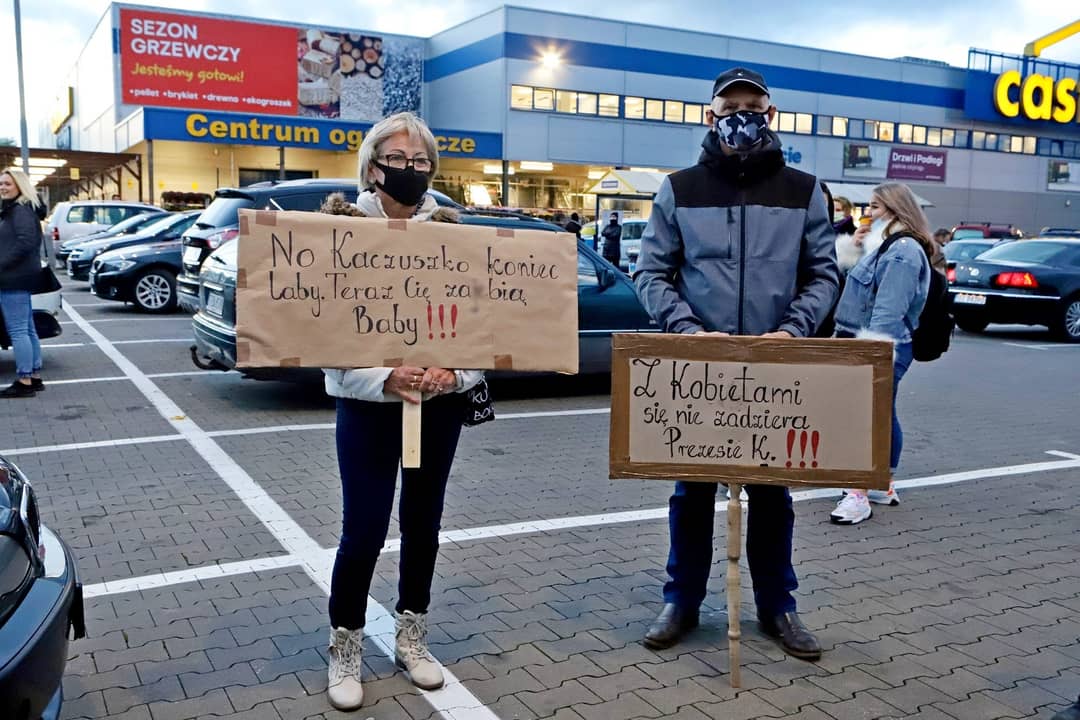 SEZON
GRZEWCZY
Jesteśmy gotowi!
•pellet •brykiet •drewno •ekogroszek
Centrum
No Kaczuszko koniec
laby. Teraz Cię za bią
Baby!!!
Z Kobietami
się nie zadziera
Prezesie K. !!!
Drzwi i Podłogi
Cas